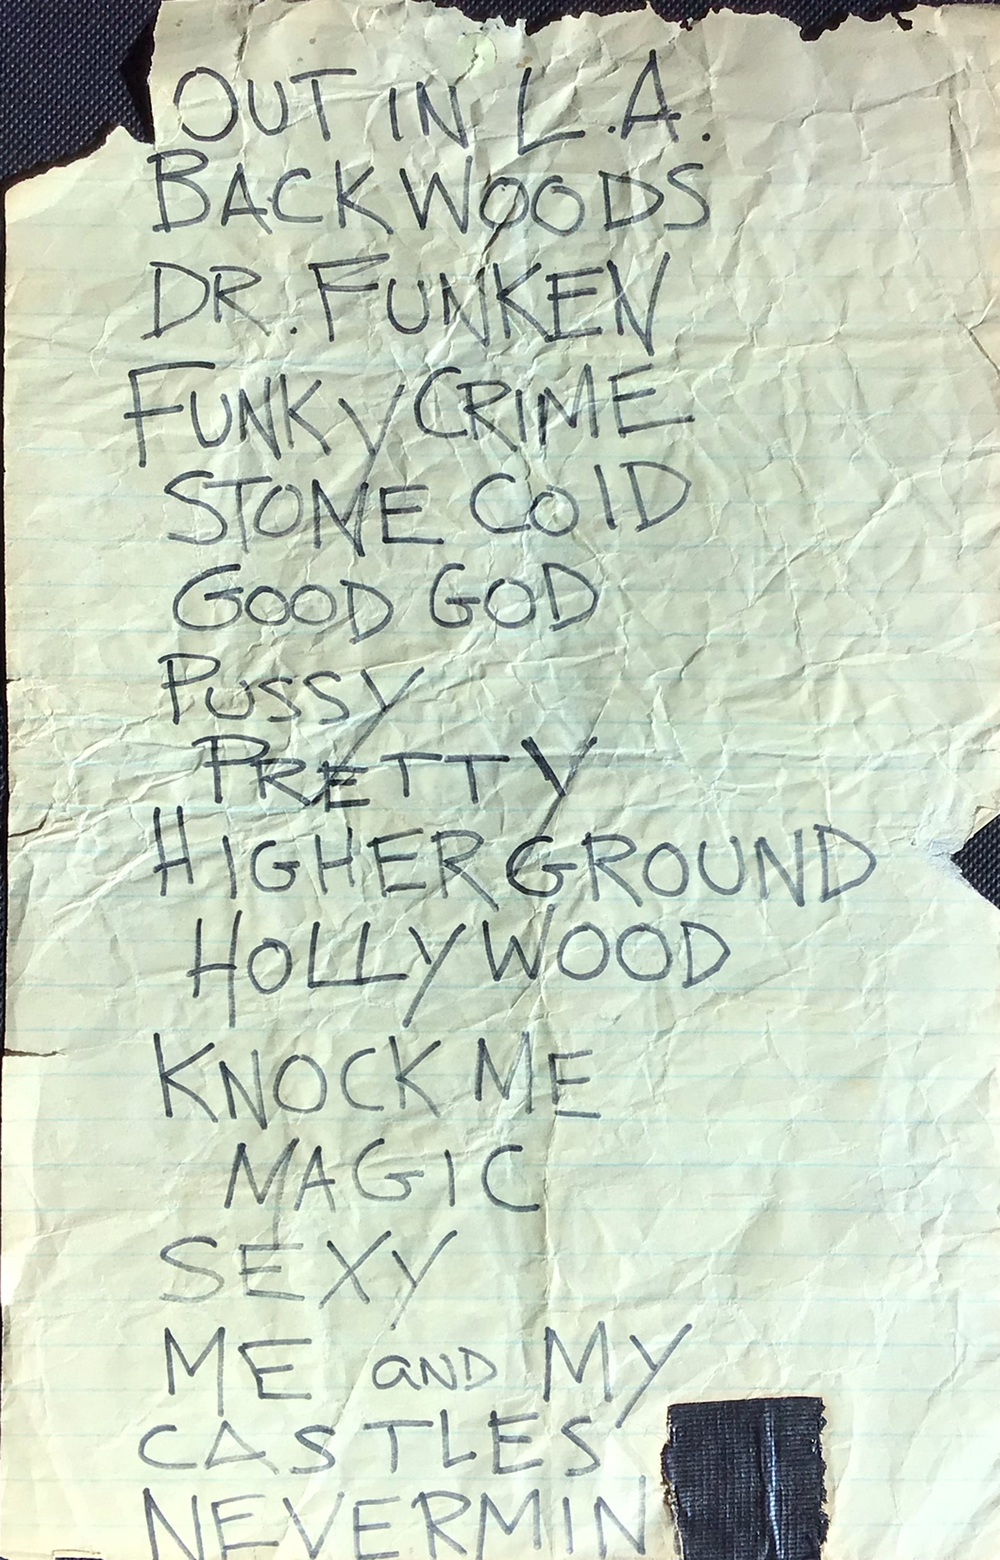 OUT IN L.A.
BACKWOODS
DR. FUNKEN
FUNKY CRIME
STONE COLD
GOOD GOD
PUSSY
PRETTY
HIGHER GROUND
HOLLYWOOD
KNOCK ME
MAGIC
SEXY
ME AND MY
CASTLES
NEVERMIN